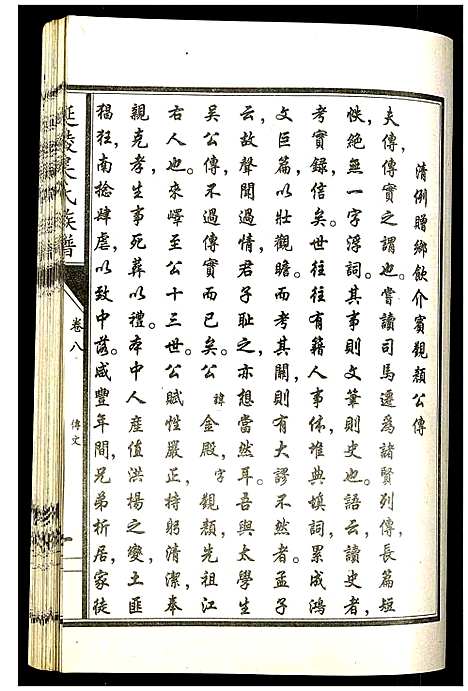 清例贈鄉飲介賓觀顏公傳
夫傳，傳實之謂也。嘗讀司馬遷為諸賢列傳，長篇短
帙，絕無一字浮詞。其事則文筆則史也。語云，讀史者，
考實錄，信矣。世往往有籍人事係堆典填詞，累成鴻
文巨篇，以壯觀瞻。而考其關，則有大謬不然者。孟子
云，故聲聞過情，君子恥之，亦想當然耳。吾與太學生
吳公傳不過傳實而已矣。公諱金殿，字觀顏，先祖江
右人也。來嶧至公十三世。公賦性嚴正，持躬清潔，奉
親克孝，生事死葬以禮。本中人産，值洪楊之變，土匪
猖狂，南捻肆虐，以致中落。咸豐年間，兄弟析居，家徒
延陵吳氏族譜
卷八
傳文
一